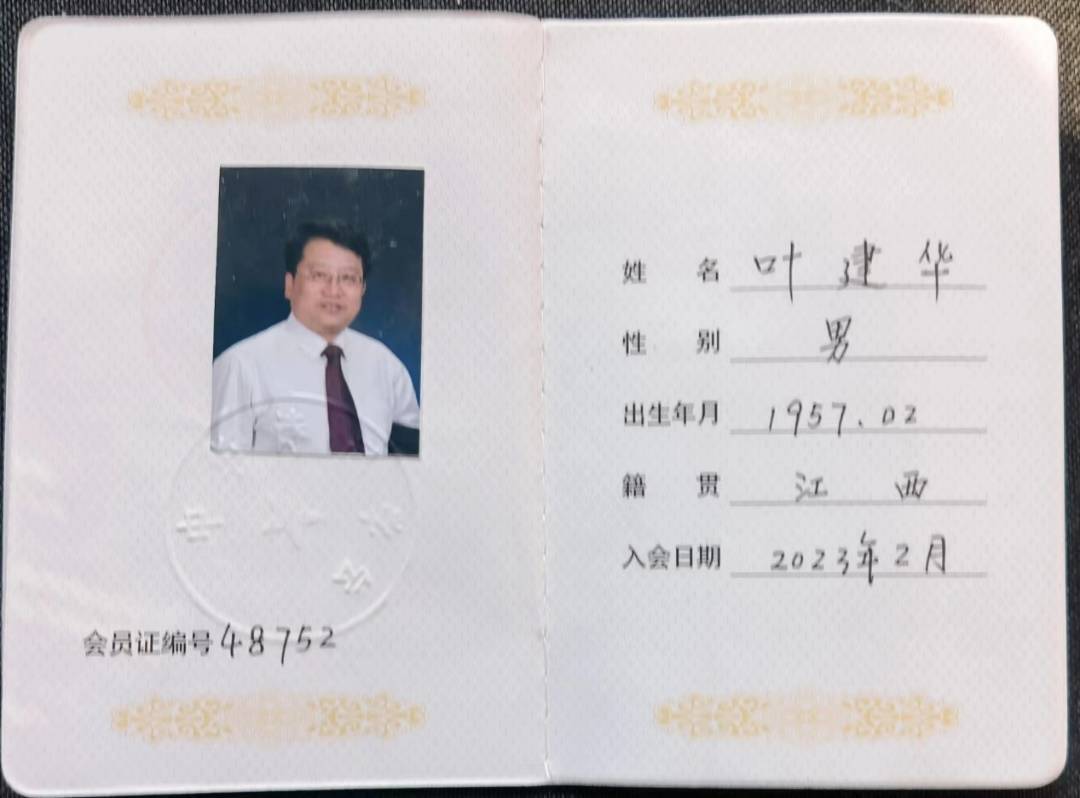 会员证编号 48752
姓名 叶建华
性别 男
出生年月 1957.02
籍贯 江西
入会日期 2023年2月